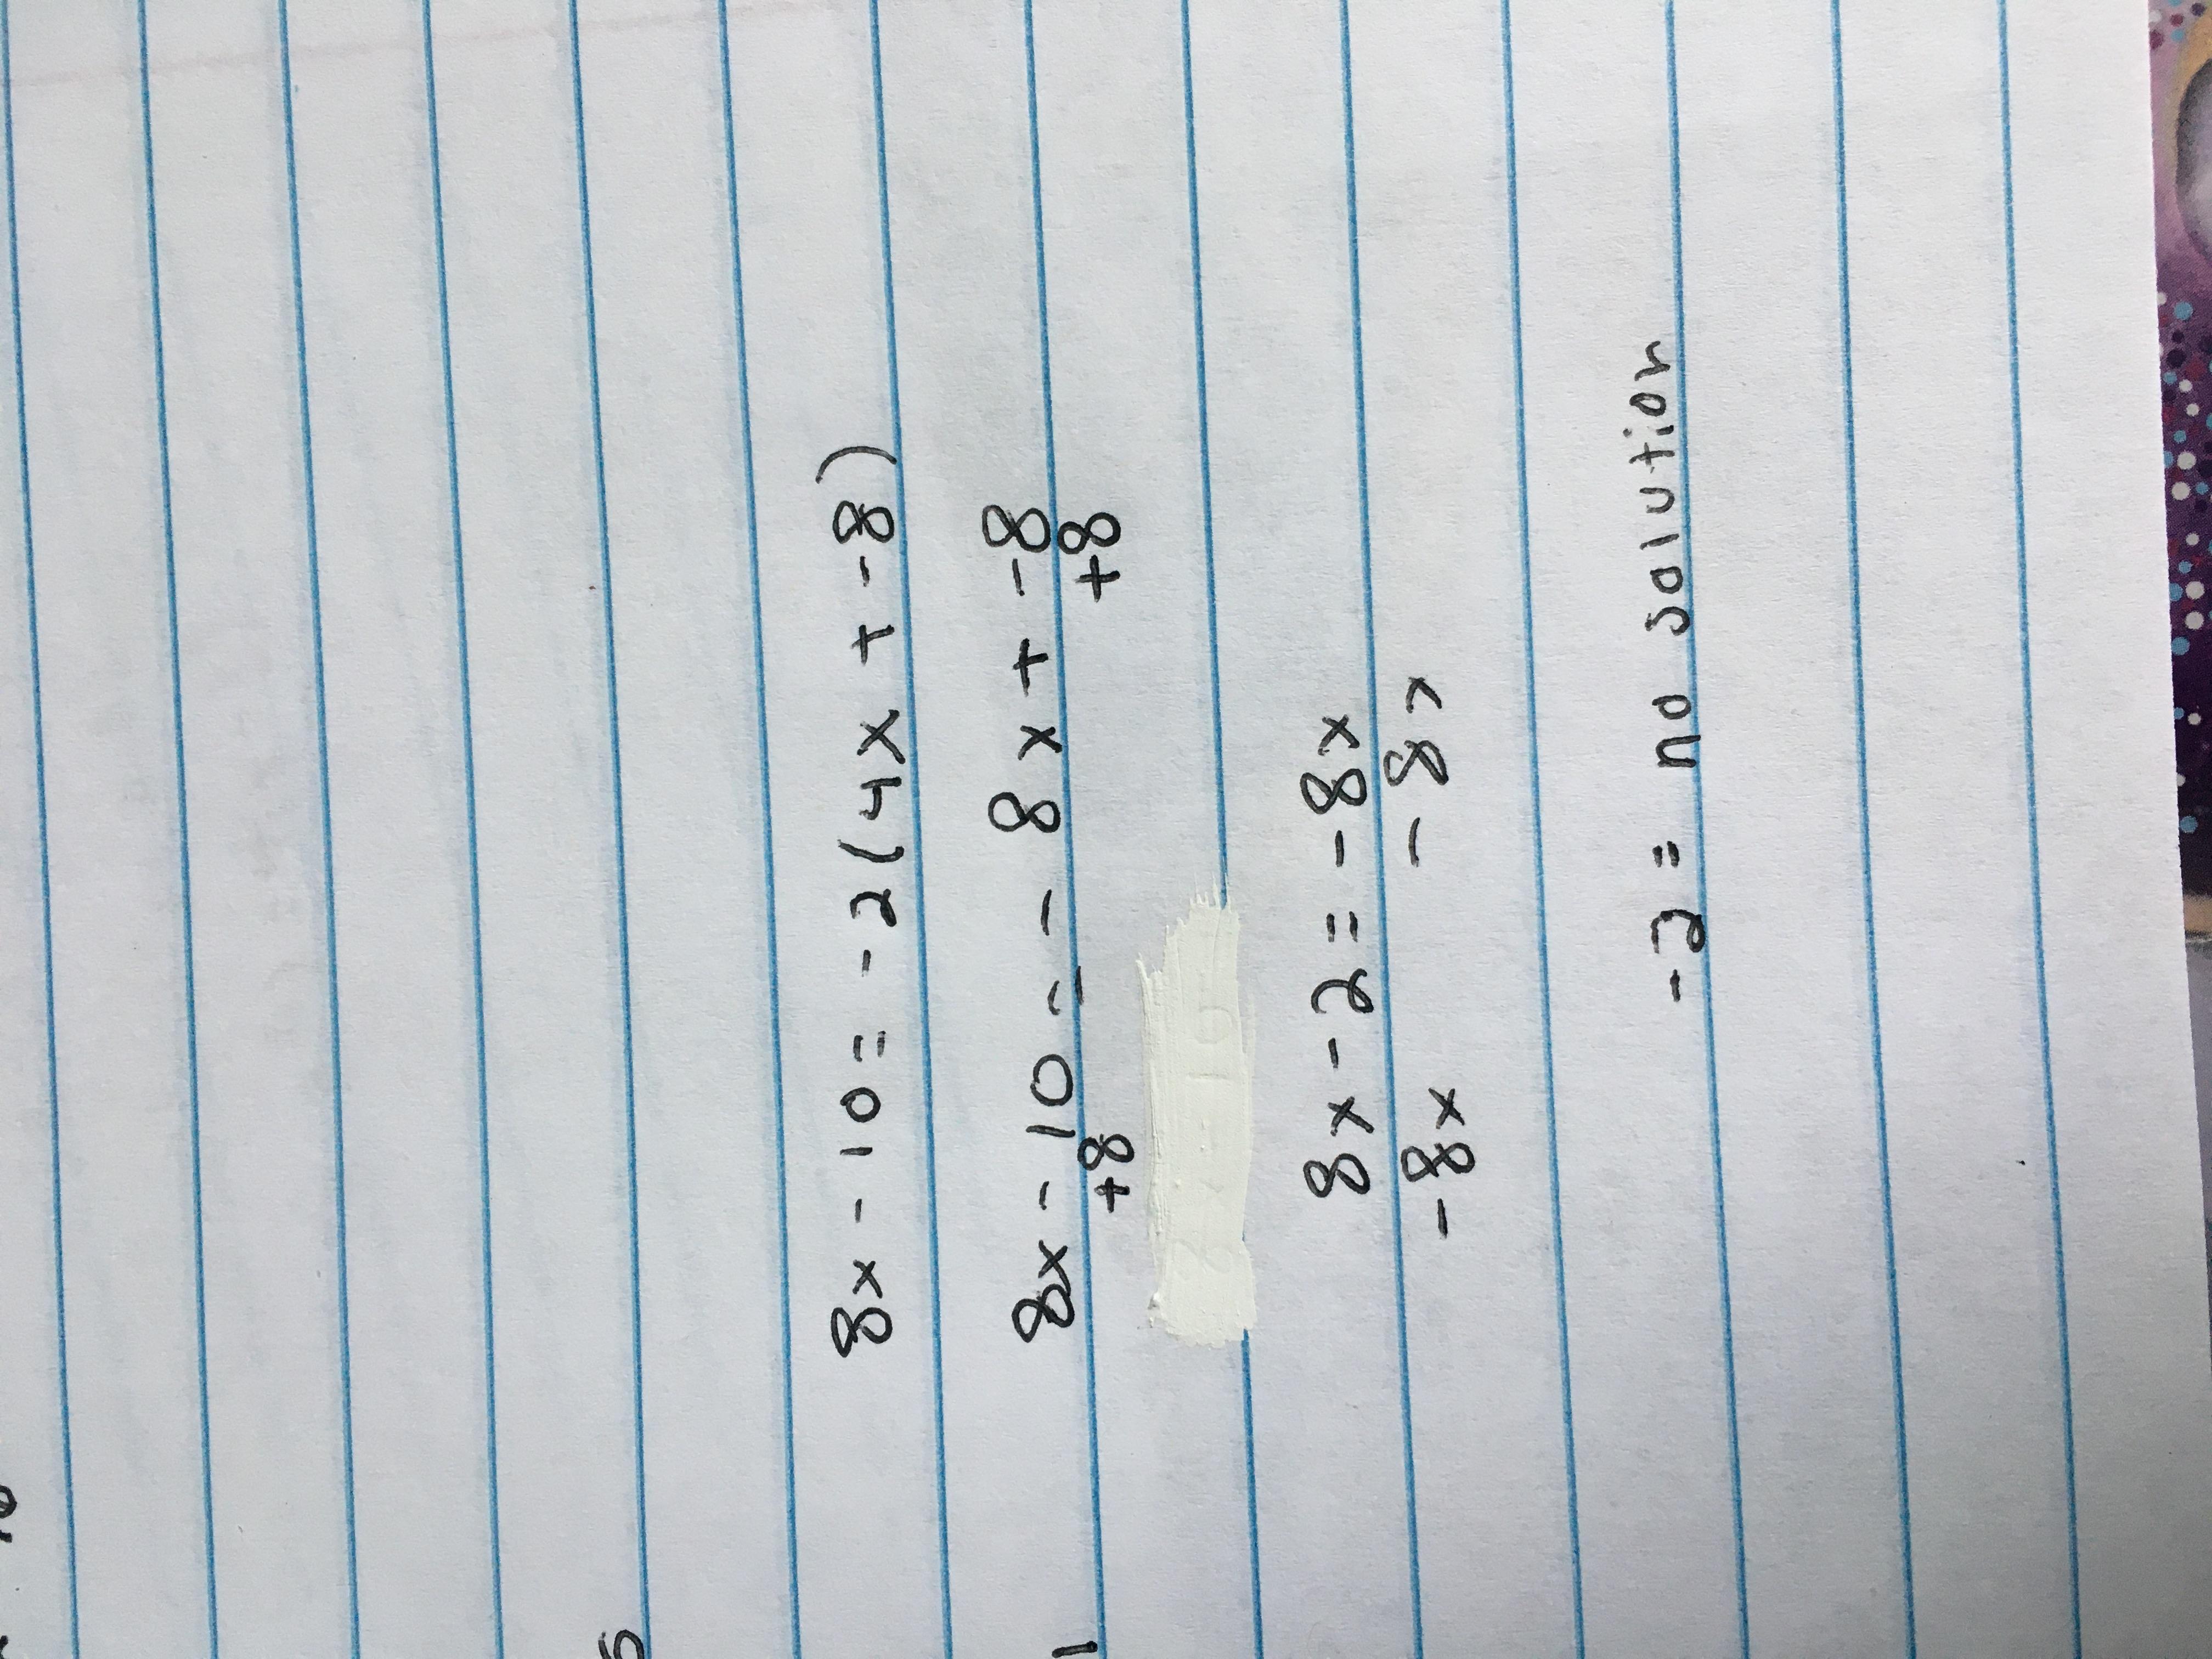 8x - 10 = -2(4x + -8)
8x - 10 = - 8x + -8
+8 +8
8x - 2 = - 8x
-8x - 8x
-2 = no solution